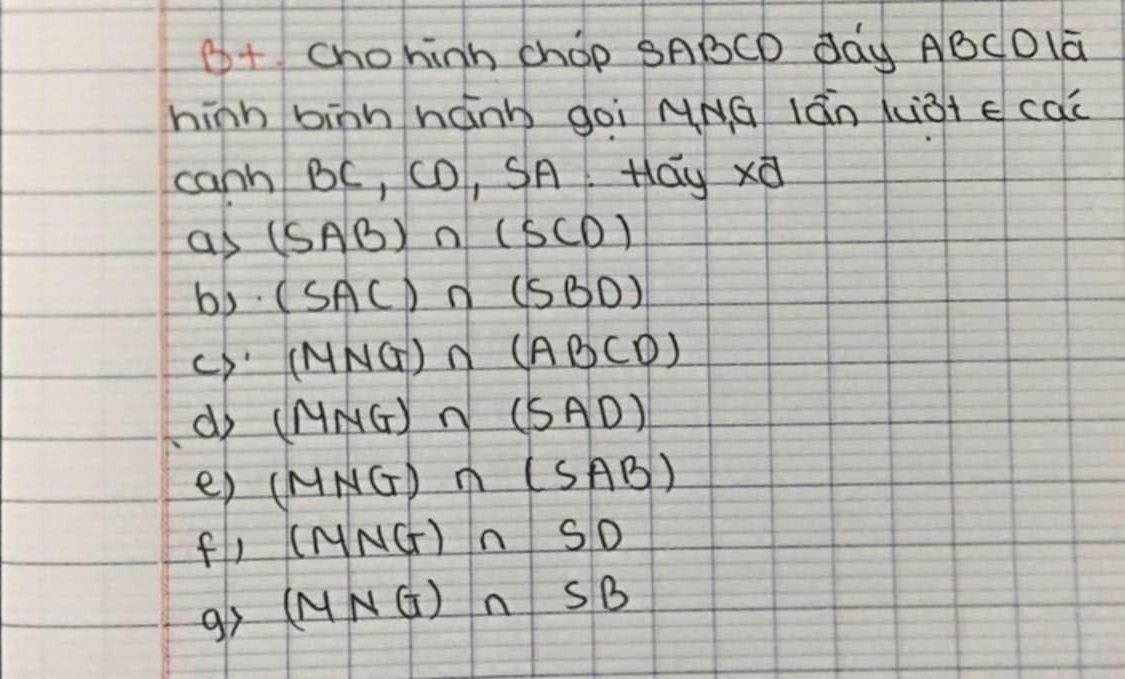 B+. Cho hình chóp SABCD đáy ABCD là
hình bình hành gọi M,N,G lần lượt ∈ các
cạnh BC, CD, SA. Hãy xđ
a) (SAB) ∩ (SCD)
b) (SAC) ∩ (SBD)
c) (MNG) ∩ (ABCD)
d) (MNG) ∩ (SAD)
e) (MNG) ∩ (SAB)
f) (MNG) ∩ SD
g) (MNG) ∩ SB